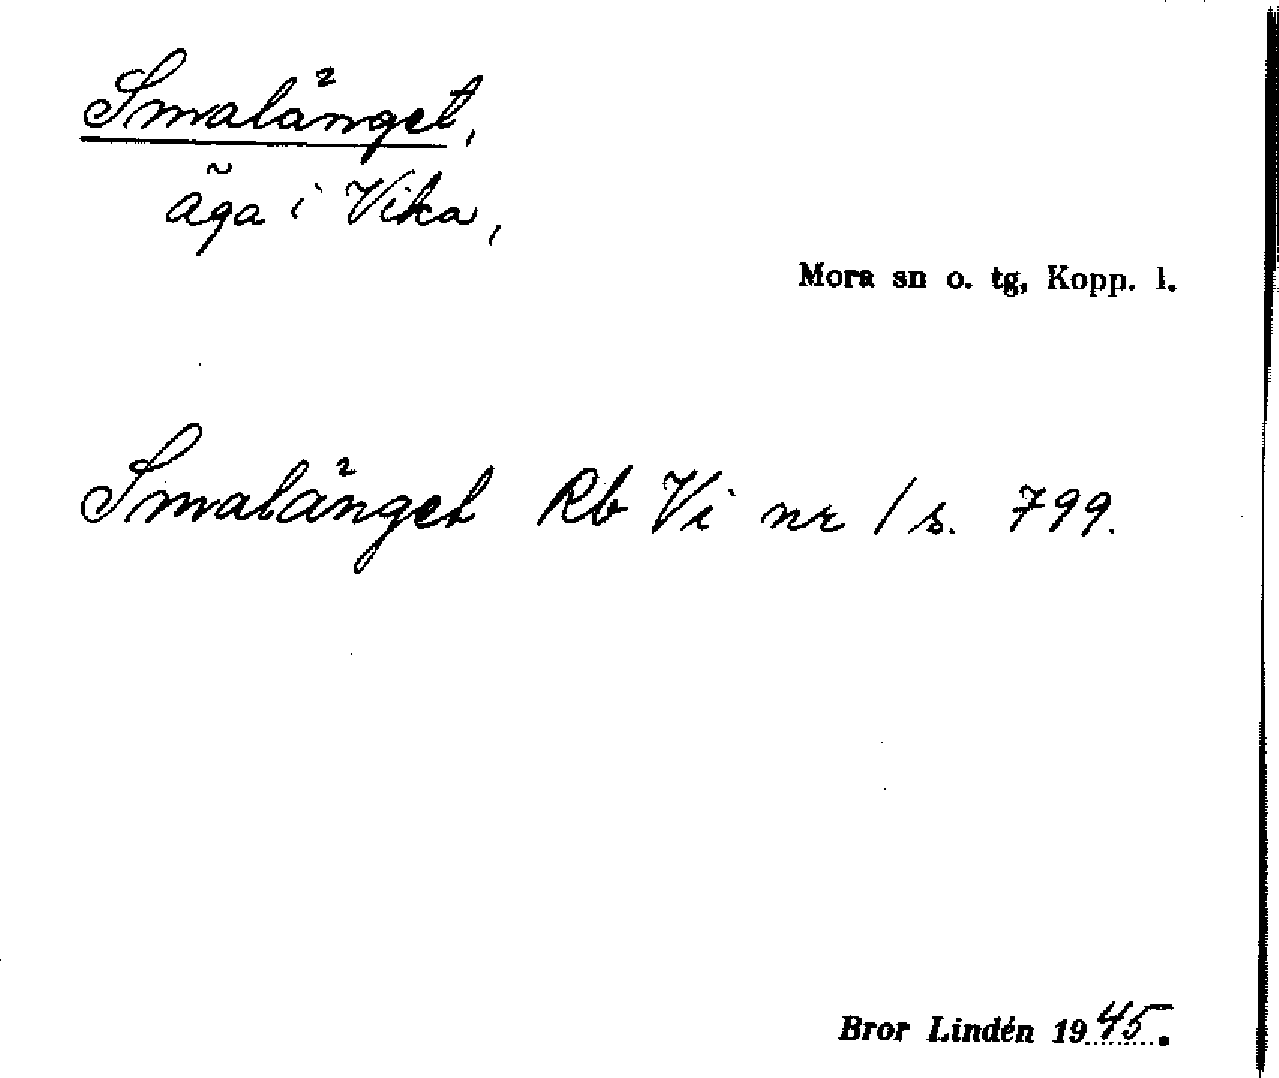 Smalänget,
äga i Vika,
Mora sn o. tg, Kopp. l.
Smalänget Rb Vi nr 1 s. 799.
Bror Lindén 1945.